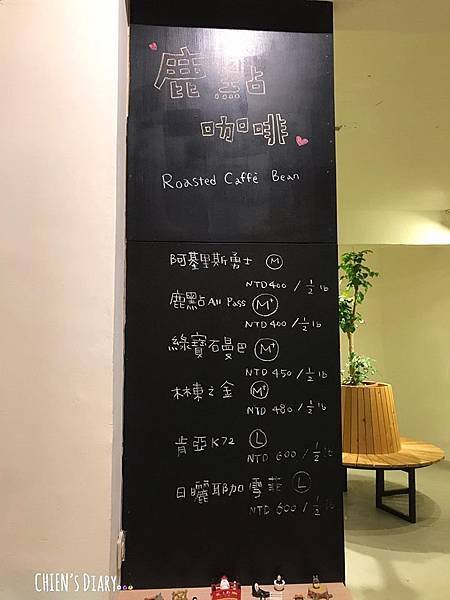 鹿點
咖啡
Roasted Caffé Bean
阿基里斯勇士 M
NTD 400 / 1/2 lb
鹿點 All Pass M+
NTD 400 / 1/2 lb
綠寶石曼巴 M+
NTD 450 / 1/2 lb
林東之金 M+
NTD 480 / 1/2 lb
肯亞 K72 L
NTD 600 / 1/2 lb
日曬耶加雪菲 L
NTD 600 / 1/2 lb
CHIEN'S DIARY